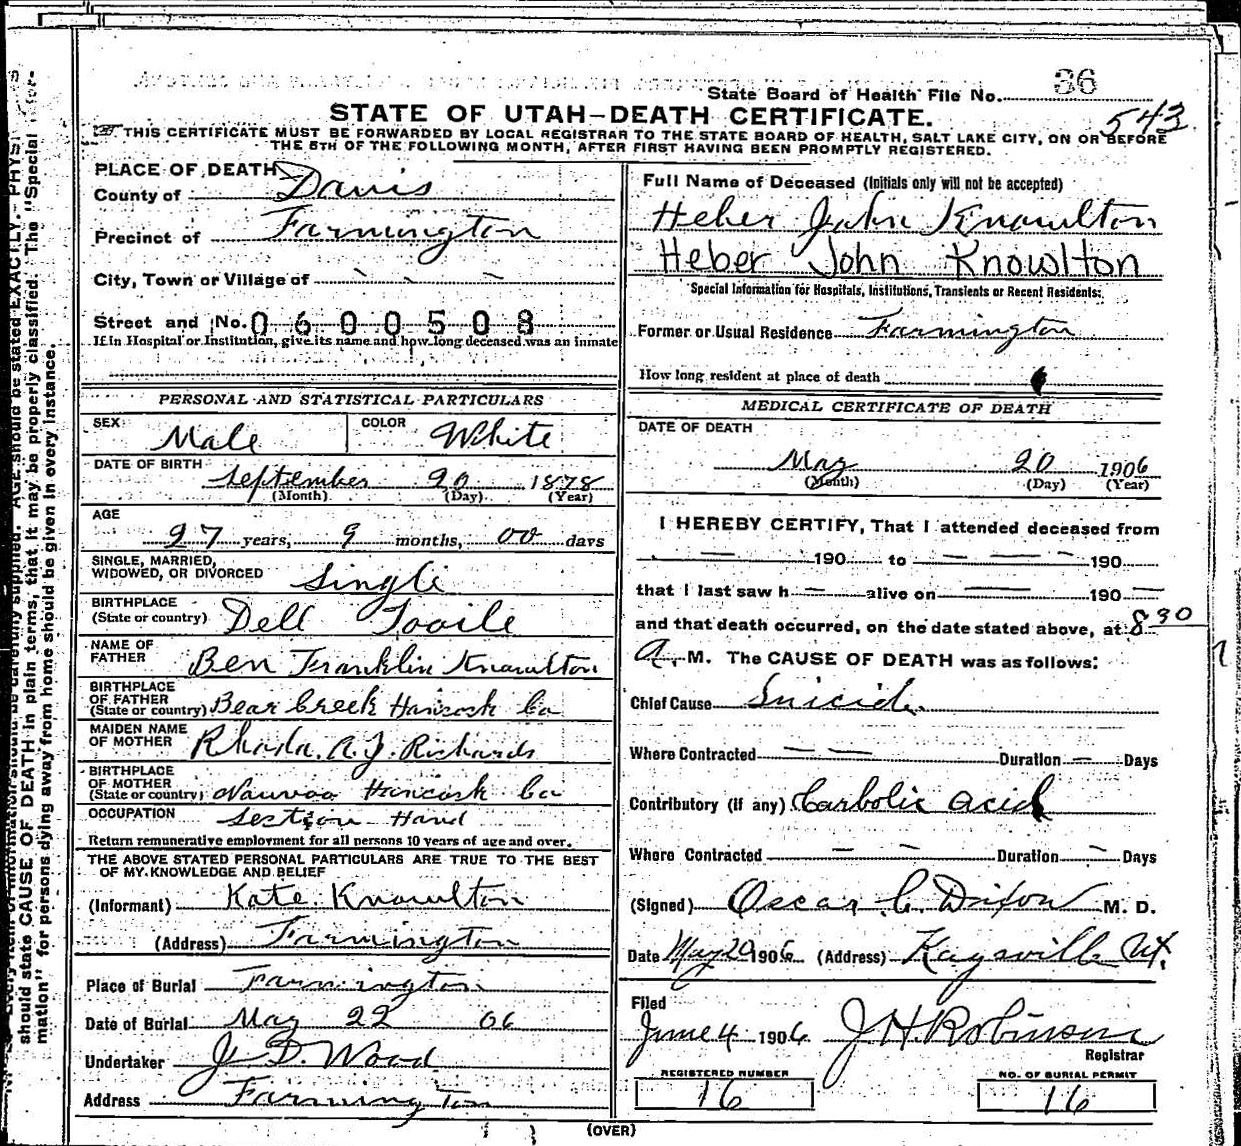 State Board of Health File No. 36
543
STATE OF UTAH-DEATH CERTIFICATE.
THIS CERTIFICATE MUST BE FORWARDED BY LOCAL REGISTRAR TO THE STATE BOARD OF HEALTH, SALT LAKE CITY, ON OR BEFORE
THE 5TH OF THE FOLLOWING MONTH, AFTER FIRST HAVING BEEN PROMPTLY REGISTERED.
PLACE OF DEATH
County of Davis
Precinct of Farmington
City, Town or Village of
Street and No. 0600508
If in Hospital or Institution, give its name and how long deceased was an inmate
PERSONAL AND STATISTICAL PARTICULARS
SEX Male COLOR White
DATE OF BIRTH September 20 1878
(Month) (Day) (Year)
AGE
27 years, 9 months, 00 days
SINGLE, MARRIED,
WIDOWED, OR DIVORCED Single
BIRTHPLACE
(State or country) Dell Tooile
NAME OF
FATHER Ben Franklin Knowlton
BIRTHPLACE
OF FATHER
(State or country) Bear Creek Hancock Co
MAIDEN NAME
OF MOTHER Rhoda. A. J. Richards
BIRTHPLACE
OF MOTHER
(State or country) Nauvoo Hancock Co
OCCUPATION Section Hand
Return remunerative employment for all persons 10 years of age and over.
THE ABOVE STATED PERSONAL PARTICULARS ARE TRUE TO THE BEST
OF MY KNOWLEDGE AND BELIEF
(Informant) Kate Knowlton
(Address) Farmington
Place of Burial Farmington
Date of Burial May 22 06
Undertaker J. D. Wood
Address Farmington
Full Name of Deceased (Initials only will not be accepted)
Heber John Knowlton
Heber John Knowlton
Special Information for Hospitals, Institutions, Transients or Recent Residents:
Former or Usual Residence Farmington
How long resident at place of death
MEDICAL CERTIFICATE OF DEATH
DATE OF DEATH
May 20 1906
(Month) (Day) (Year)
I HEREBY CERTIFY, That I attended deceased from
— 190 to — — — 190
that I last saw h — alive on — — 190 —
and that death occurred, on the date stated above, at 8 30
A. M. The CAUSE OF DEATH was as follows:
Chief Cause Suicide
Where Contracted — — Duration — Days
Contributory (if any) Carbolic acid
Where Contracted — - Duration - Days
(Signed) Oscar C. Dixon M. D.
Date May 20 1906 (Address) Kaysville Ut.
Filed
June 4 1906 J H Robinson
Registrar
REGISTERED NUMBER
16
NO. OF BURIAL PERMIT
16
(OVER)
should state CAUSE OF DEATH in plain terms, that it may be properly classified. The "Special
mation" for persons dying away from home should be given in every instance.